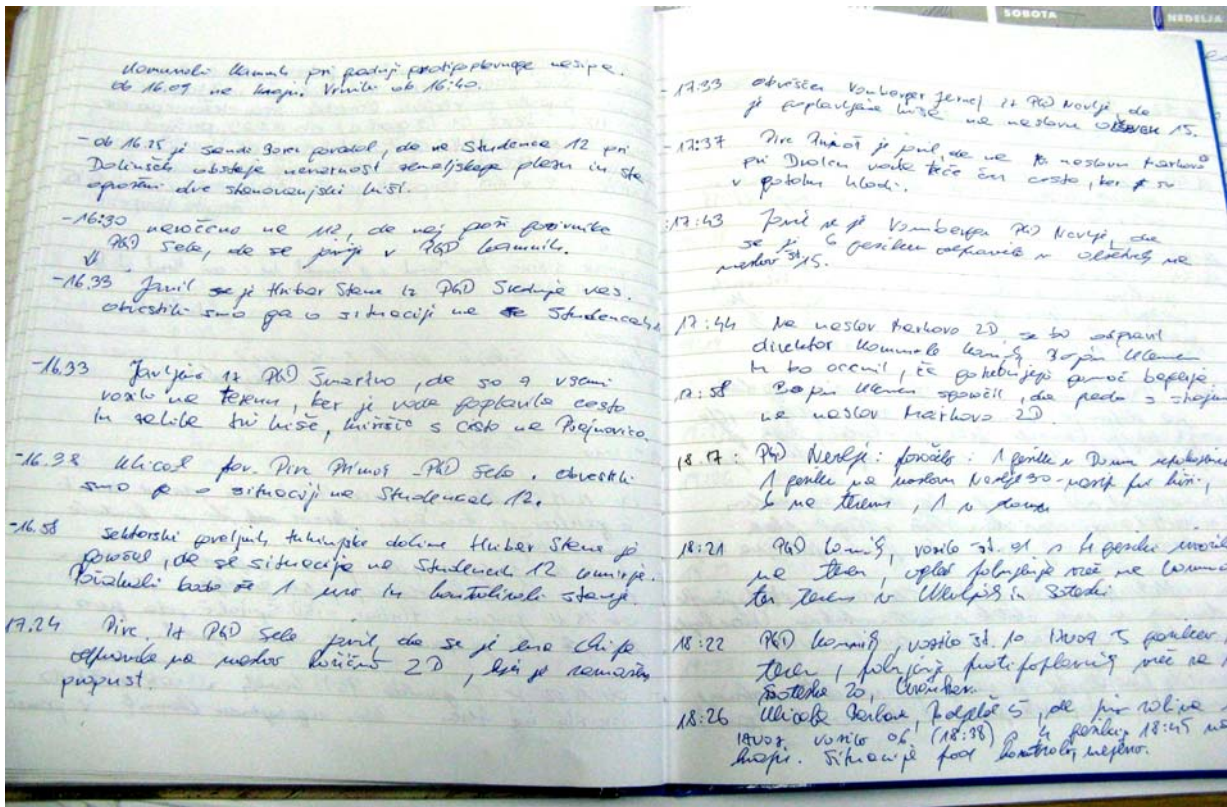 SOBOTA
NEDELJA
Komunali Kamnik pri gradnji protipoplavnega nasipa.
ob 16.09 na kraju. Vrnili ob 16:40.
- ob 16.25 je Sandi povedal, da na Studenca 12 pri
Dolinšek obstaja nevarnost zemeljskega plazu in sta
ogroženi dve stanovanjski hiši.
- 16:30 naročeno na 112, da naj poziv
PGD Sela, da se javijo v PGD Kamnik.
- 16.33 Javil se je Hribar Stane iz PGD Srednja vas.
obvestili smo ga o situaciji na Studencah
- 16.33 Javljeno iz PGD Šmartno, da so z vsemi
vozili na terenu, ker je voda poplavila cesto
in zalila tri hiše, s cesto na
- 16.38 Klical pov. Pirc Primož - PGD Sela. obvestili
smo ga o situaciji na Studencah 12.
- 16.58 sektorski poveljnik tuhinjske doline Hribar Stane je
poročal, da se situacija na Studencah 12 umirja.
Počakali bodo še 1 uro in kontrolirali stanje.
17.24 Pirc iz PGD Sela javil da se je ena ekipa
odpravila na naslov 2D, kjer je zamašen
propust.
- 17:33 obveščen Vomberger Jernej iz PGD Nevlje, da
je poplavljena hiša na naslovu 15.
- 17:37 Pirc Primož je javil, da na naslovu Markovo
pri Drolcu voda teče čez cesto, ker so
v potoku hlodi.
- 17:43 Javil se je Vomberger PGD Nevlje, da
se je 6 gasilcev odpravilo v na
naslov št. 15.
17:44 Na naslov Markovo 2D se bo odpravil
direktor Komunale Kamnik Bojan
in bo ocenil, če potrebujejo pomoč bagerja.
17:58 Bojan sporočil, da gredo s strojem
na naslov Markovo 2D.
18.17: PGD Nevlje: poročilo: 1 gasilec v Domu
1 gasilec na naslovu Nevlje 30 - nasip pri hiši,
6 na terenu, 1 v domu
18:21 PGD Kamnik, vozilo št. 01 s 4 gasilci
na teren, ogled polnjenje vreč na
ter teren v in Soteski
18:22 PGD Kamnik, vozilo št. 10 izvoz 5 gasilcev
teren, polnjenje protipoplavnih vreč na
Soteska 20,
18:26 Klicala 5, da jim zaliva
izvoz vozilo 06 (18:38) s 4 gasilci, 18:45 na
kraju. Situacija pod kontrolo, urejeno.